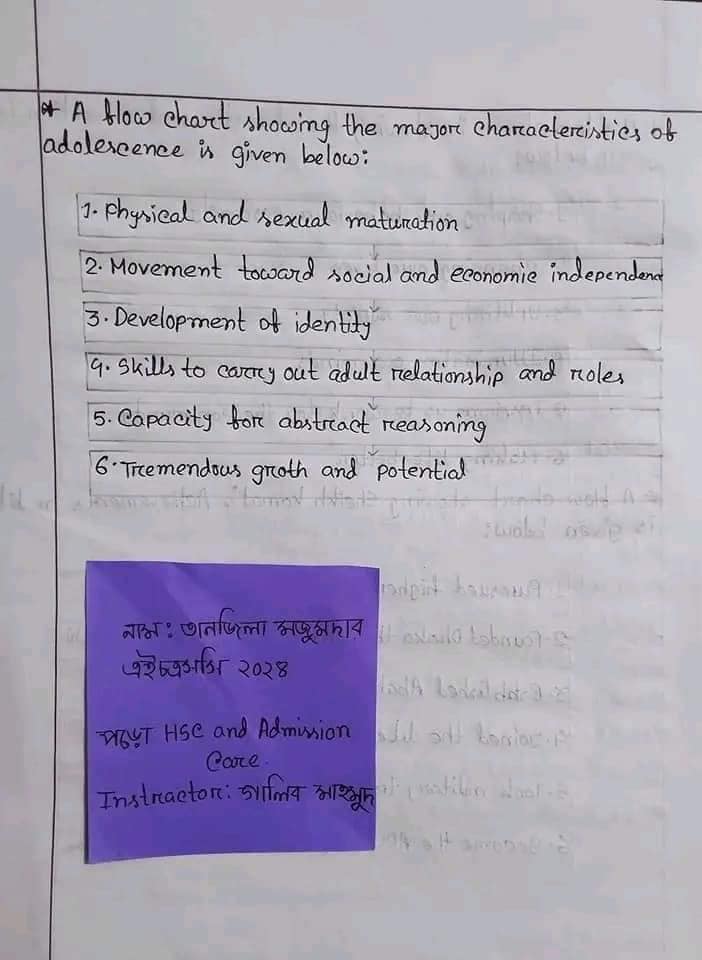 * A flow chart showing the major characteristics of
adolescence is given below:
1. Physical and sexual maturation
2. Movement toward social and economic independenc
3. Development of identity
4. Skills to carry out adult relationship and roles
5. Capacity for abstract reasoning
6. Tremendous groth and potential
নাম: তানজিলা মজুমদার
এইচএসসি ২০২৪
পড়ো HSC and Admission
Care.
Instractor: গালিব মাহমুদ